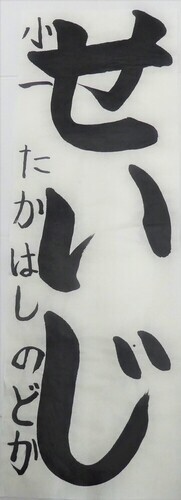 せいじ
小一 たかはしのどか